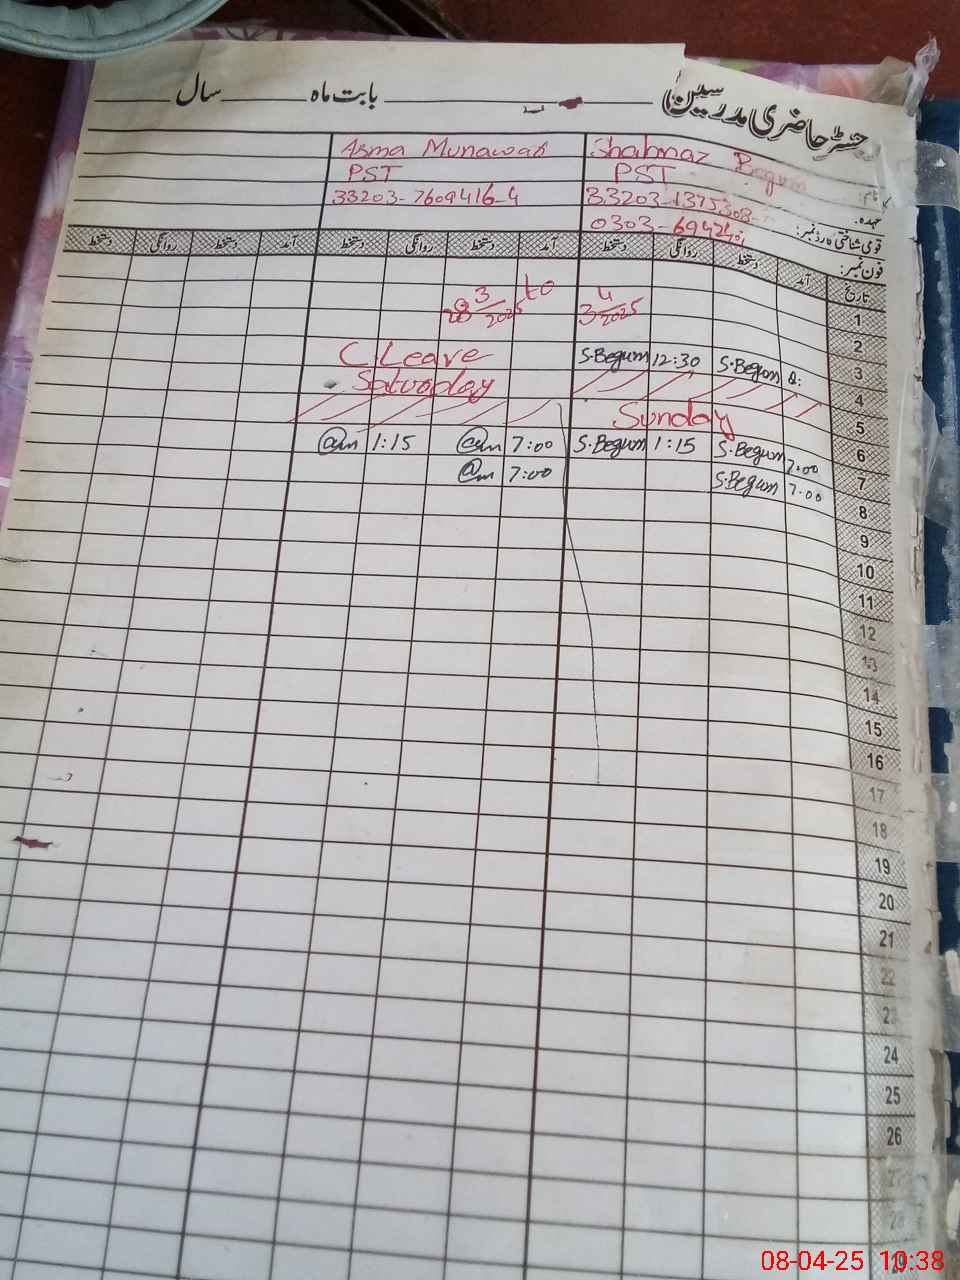 رجسٹر حاضری مدرسین ــــــــ بابت ماہ ــــــــ سال ــــــــ
نام: Shahnaz Begum Asma Munawar
عہدہ: PST PST
قومی شناختی کارڈ نمبر: 33203-1375308- 33203-7609416-4
فون نمبر: 0303-6942
تاریخ آمد دستخط روانگی دستخط آمد دستخط روانگی دستخط آمد دستخط روانگی دستخط
1
28 3/2025 to 3 4/2025
2
3
C Leave S.Begum 12:30 S.Begum 8:
4
Saturday
5
Sunday
6
@m 1:15 @m 7:00 S.Begum 1:15 S.Begum 7:00
7
@m 7:00 S.Begum 7:00
8
9
10
11
12
13
14
15
16
17
18
19
20
21
22
23
24
25
26
27
28
29
08-04-25 10:38